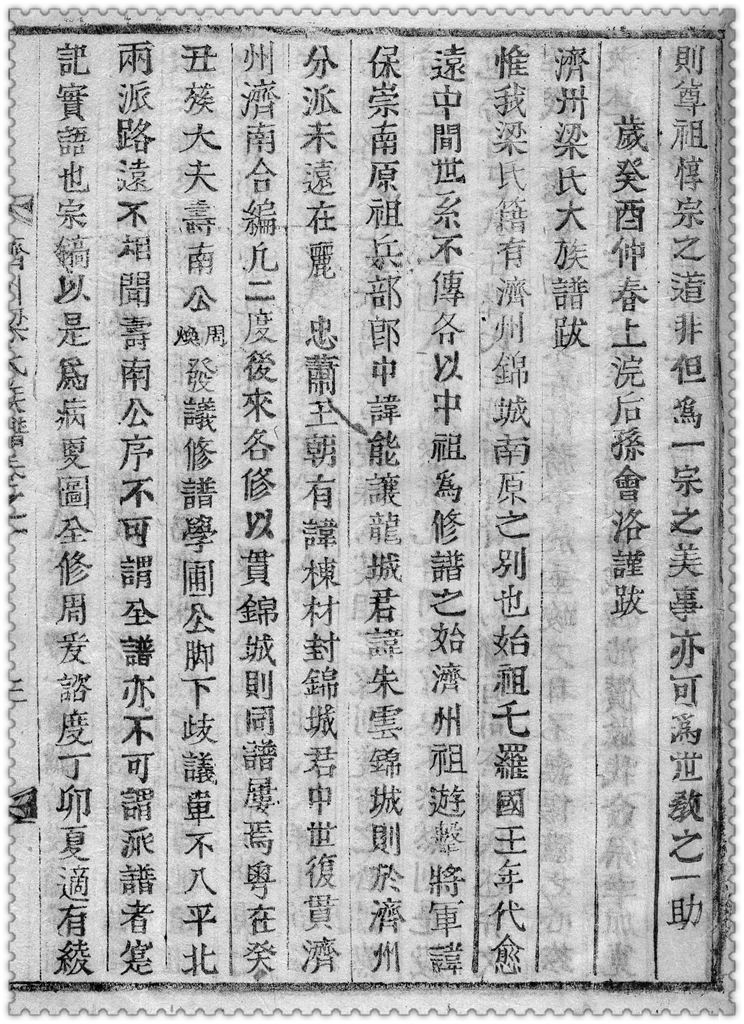 則尊祖惇宗之道非但爲一宗之美事亦可爲世敎之一助
歲癸酉仲春上浣后孫會洛謹跋
濟州梁氏大族譜跋
惟我梁氏籍有濟州錦城南原之别也始祖乇羅國王年代愈
遠中間世系不傳各以中祖爲修譜之始濟州祖遊擊將軍諱
保崇南原祖兵部郎中諱能讓龍城君諱朱雲錦城則於濟州
分派未遠在麗 忠肅王朝有諱棟材封錦城君中世復貫濟
州濟南合編凡二度後來各修以貫錦城則同譜屢焉粤在癸
丑簇大夫壽南公周煥發議修譜學圃公脚下歧議單不入平北
兩派路遠不相聞壽南公序不可謂全譜亦不可謂派譜者寔
記實語也宗鎬以是爲病更圖全修周爰諮度丁卯夏適有綾
濟州梁氏族譜